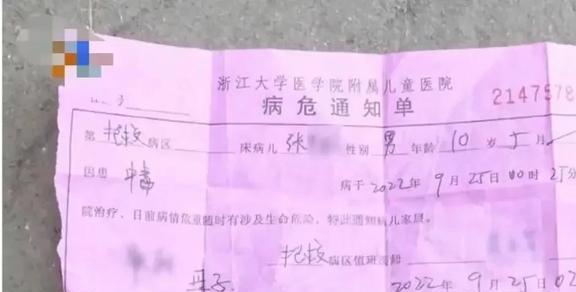 浙江大学医学院附属儿童医院
病危通知单
2147578
第 抢救 病区 床病儿 张 性别 男 年龄 10 岁 5 月
因患 中毒 病于 2022 年 9 月 25 日 00 时 25 分
院治疗、目前病情危重随时有涉及生命危险，特此通知病儿家属。
抢救 病区值班医师
2022 年 9 月 25 日 02